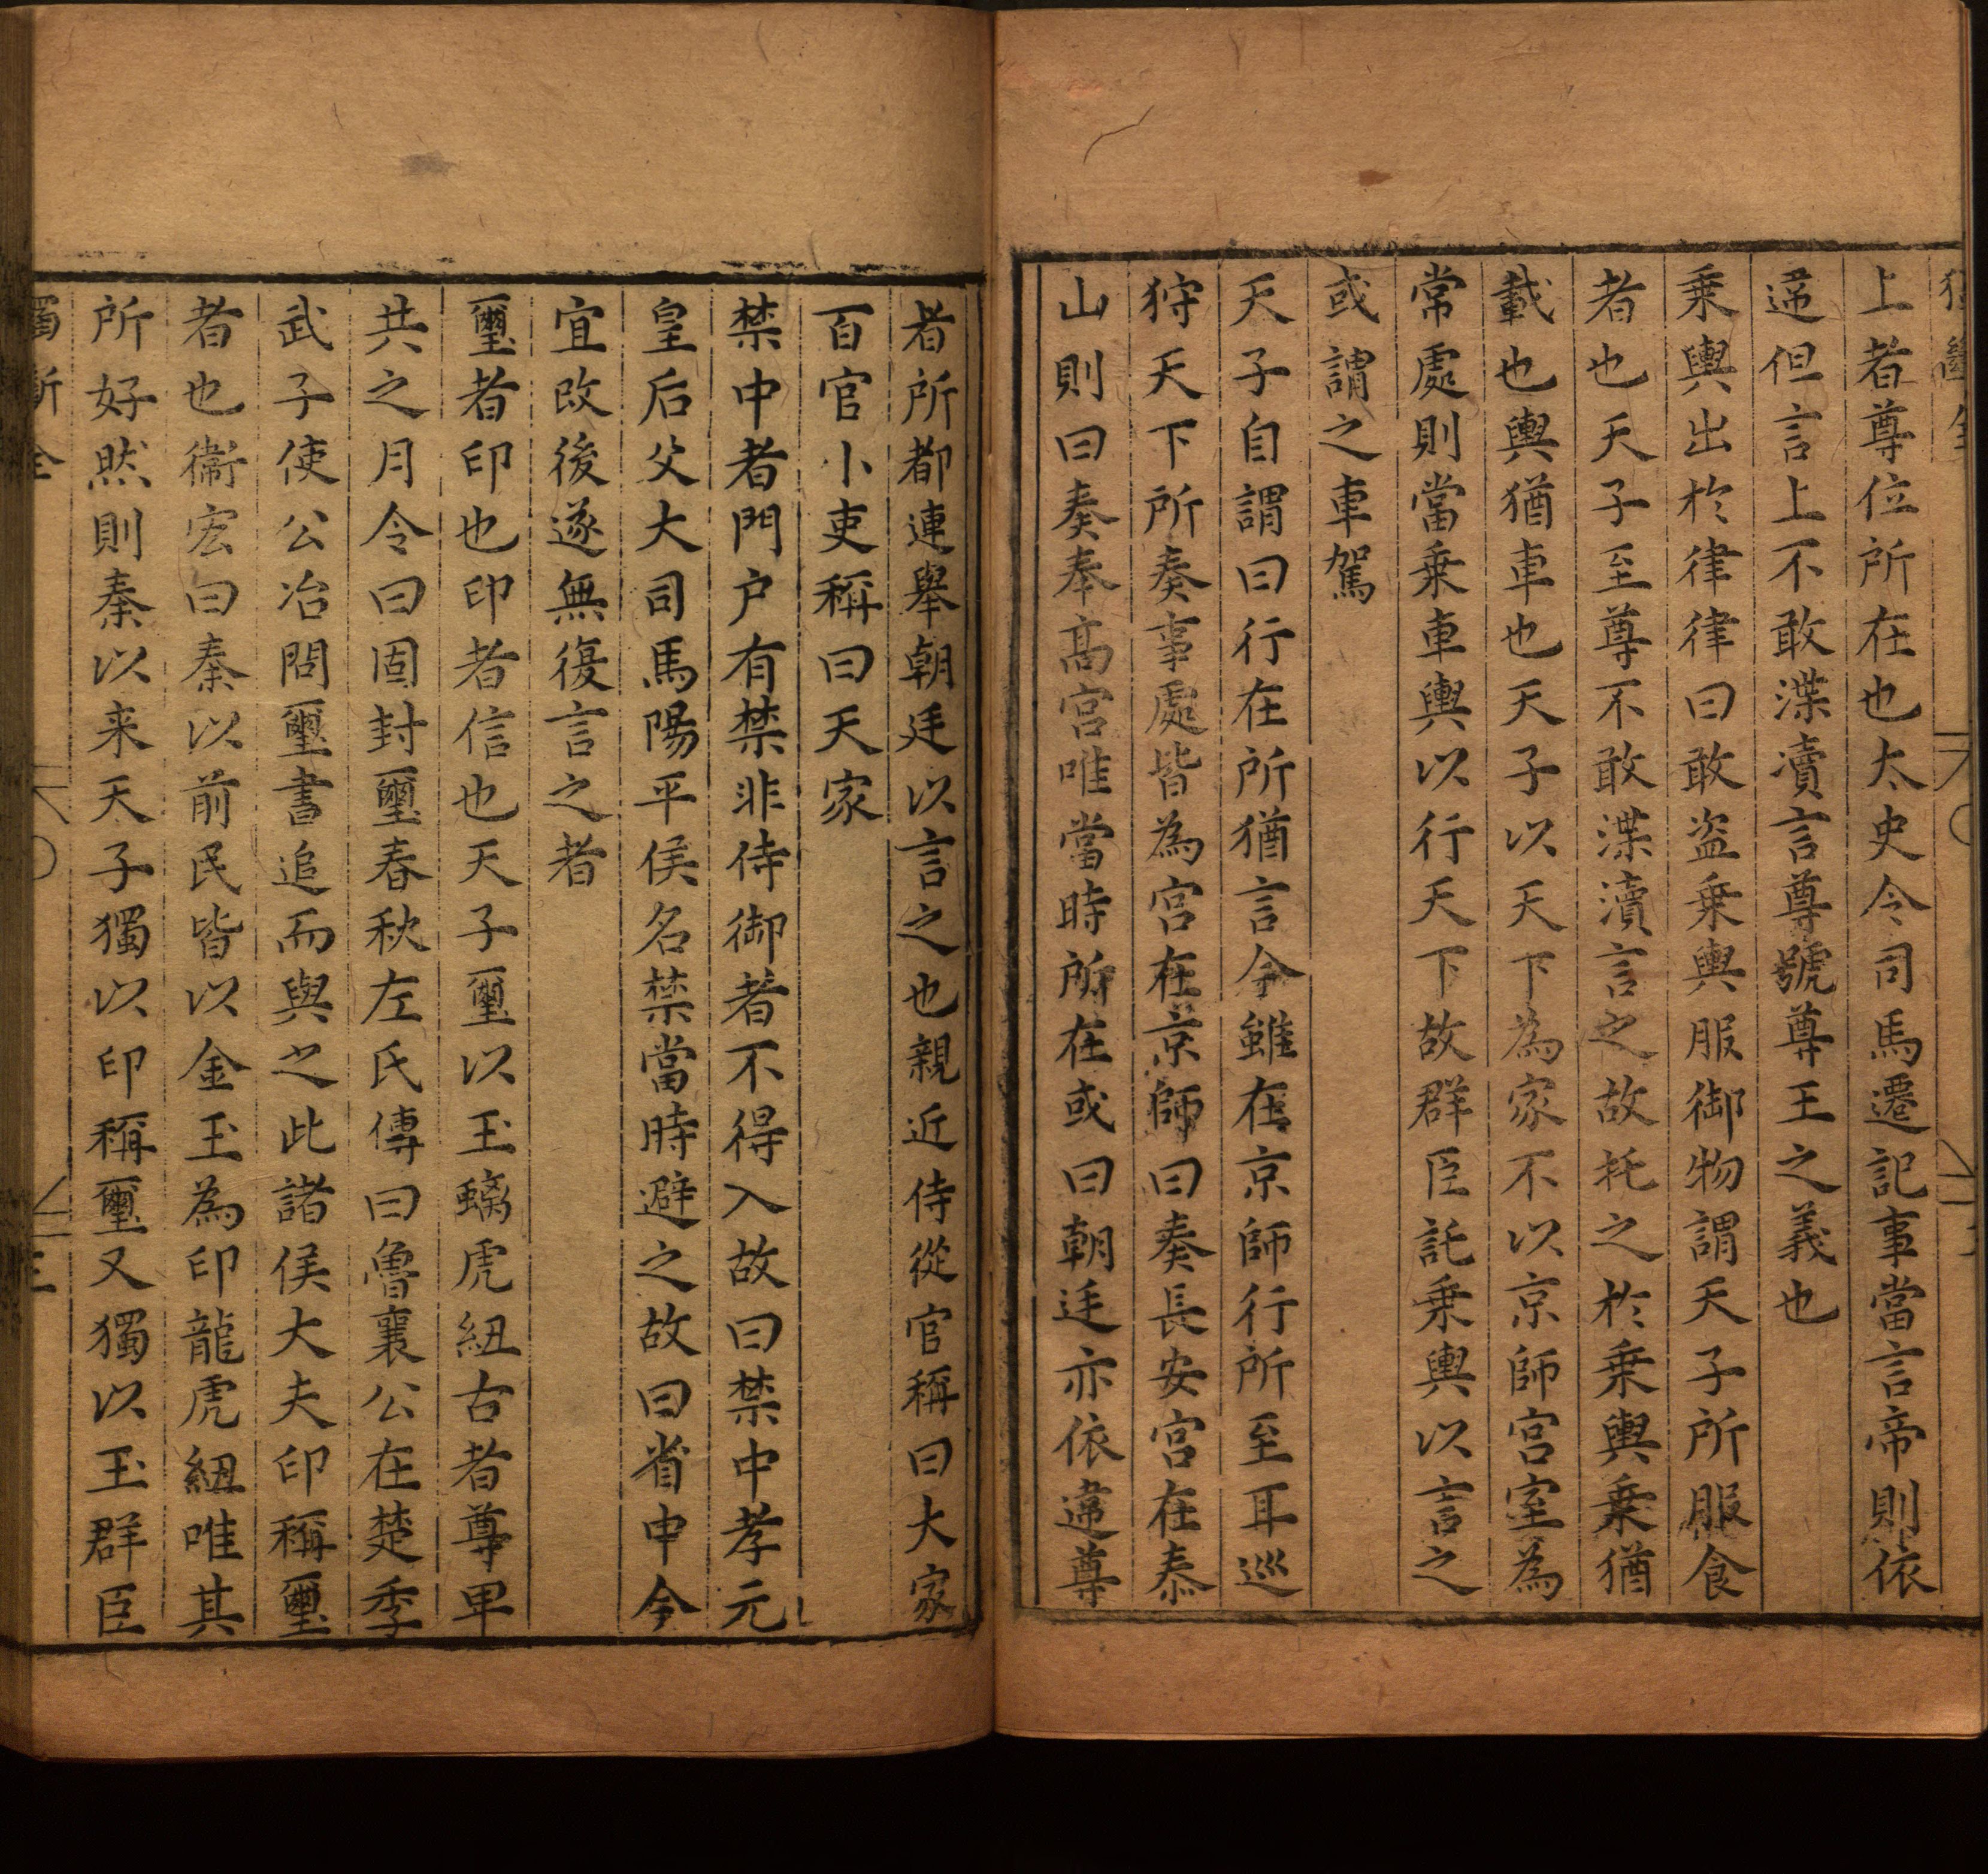 上者尊位所在也太史令司馬遷記事當言帝則依
違但言上不敢渫瀆言尊號尊王之義也
乗輿出於律律曰敢盗乗輿服御物謂天子所服食
者也天子至尊不敢渫瀆言之故托之於乗輿乗猶
載也輿猶車也天子以天下為家不以京師宮室為
常處則當乗車輿以行天下故群臣託乗輿以言之
或謂之車駕
天子自謂曰行在所猶言今雖在京師行所至耳巡
狩天下所奏事處皆為宮在京師曰奏長安宮在泰
山則曰奏奉高宮唯當時所在或曰朝廷亦依違尊
者所都連舉朝廷以言之也親近侍從官稱曰大家
百官小吏稱曰天家
禁中者門户有禁非侍御者不得入故曰禁中孝元
皇后父大司馬陽平侯名禁當時避之故曰省中今
宜改後遂無復言之者
璽者印也印者信也天子璽以玉螭虎紐古者尊卑
共之月令曰固封璽春秋左氏傳曰魯襄公在楚季
武子使公冶問璽書追而與之此諸侯大夫印稱璽
者也衞宏曰秦以前民皆以金玉為印龍虎紐唯其
所好然則秦以来天子獨以印稱璽又獨以玉群臣
獨斷全
三